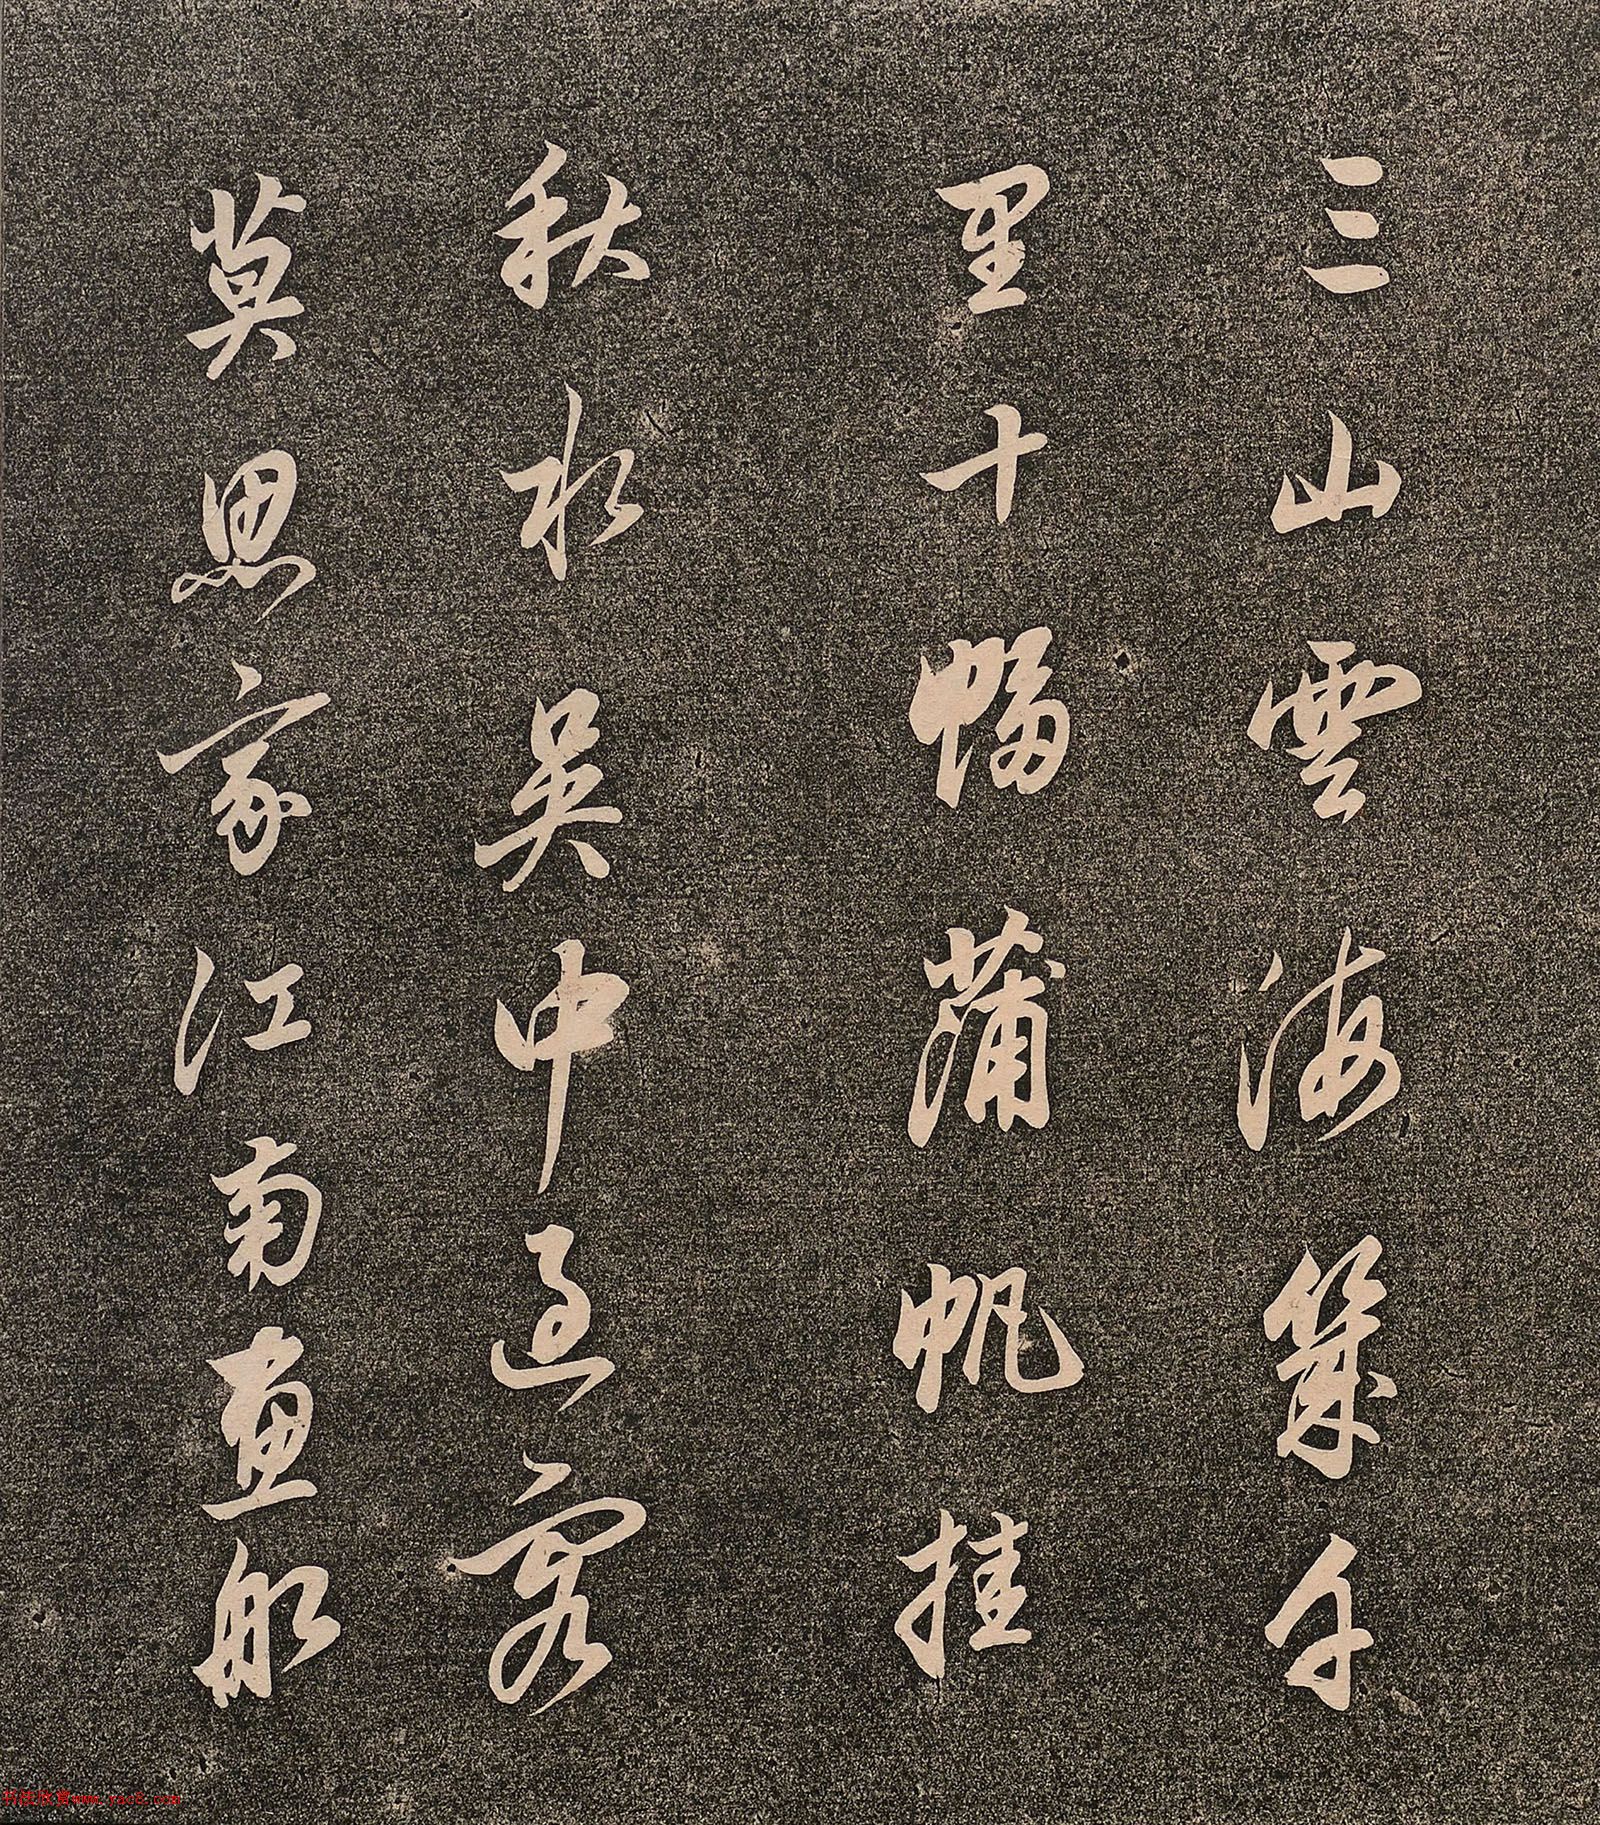 三山雲海幾千
里十幅蒲帆挂
秋水吳中過客
莫思家江南畫船
书法欣赏www.yac8.com